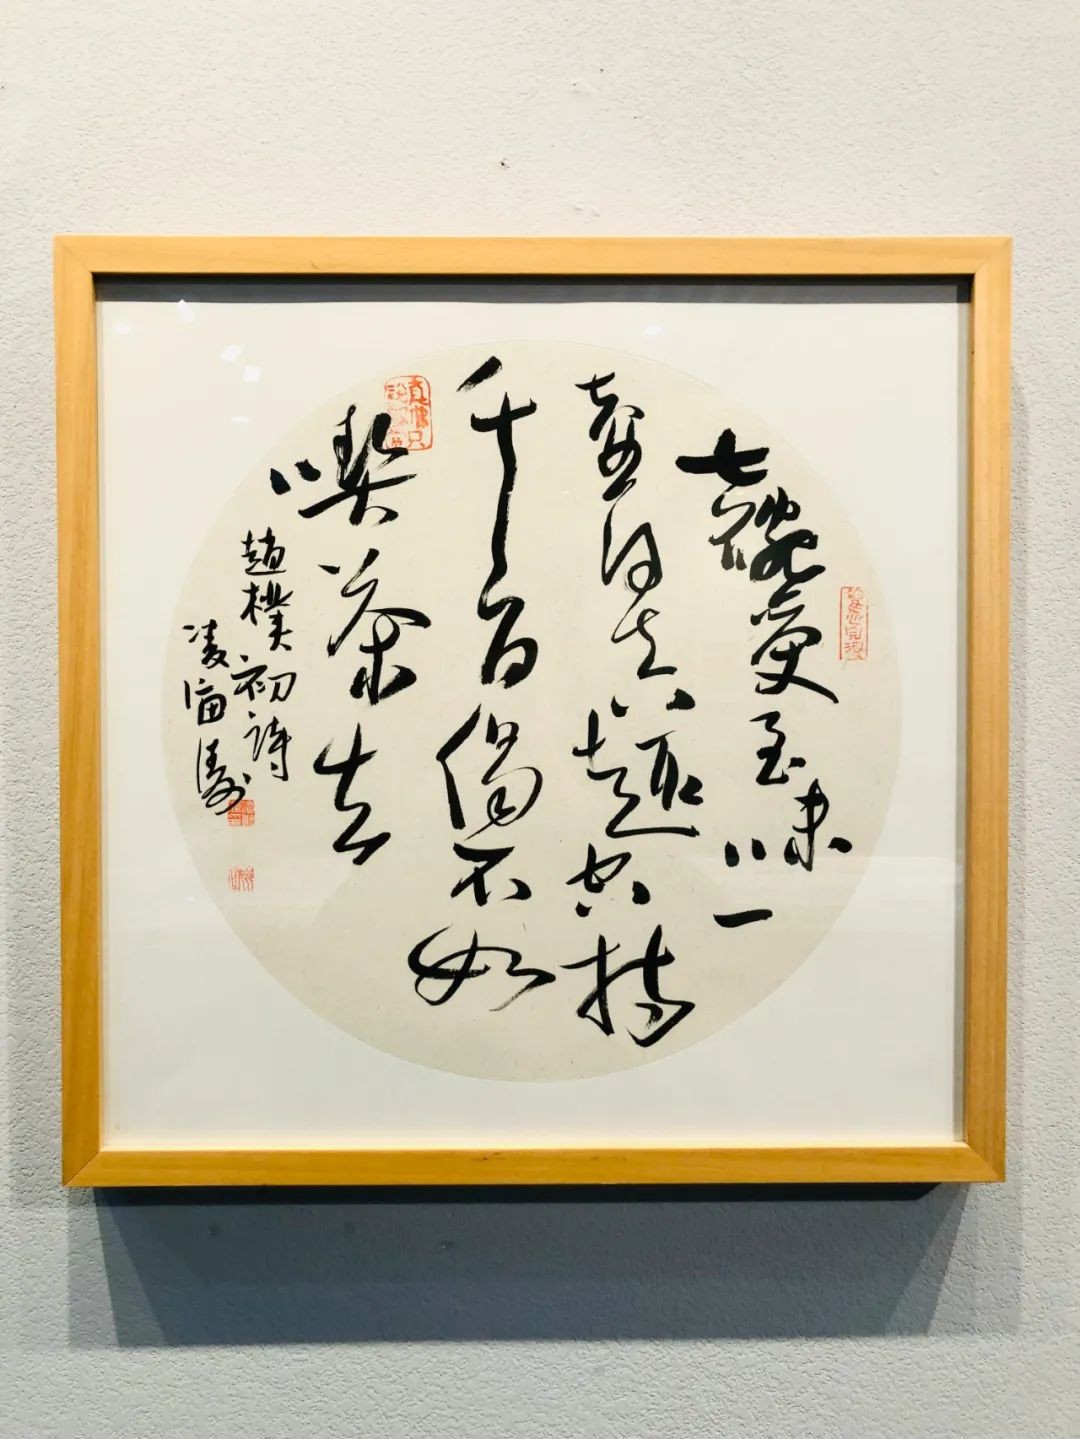 七碗受至味一
壺得真趣空持
千百偈不如
喫茶去
趙樸初詩
凌富